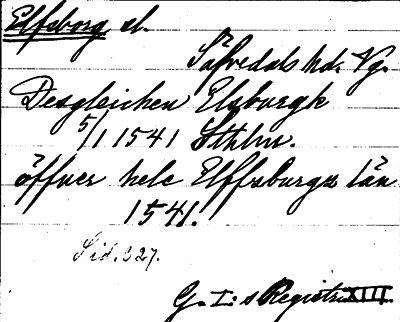 Elfsborg sl.
Säfvedals hd. Vg.
Desgleichen Elsburgk
5/1 1541 Sthlm.
öffuer hele Elffzburgz län
1541.
Sid. 327.
G. I:s Registr. XIII.